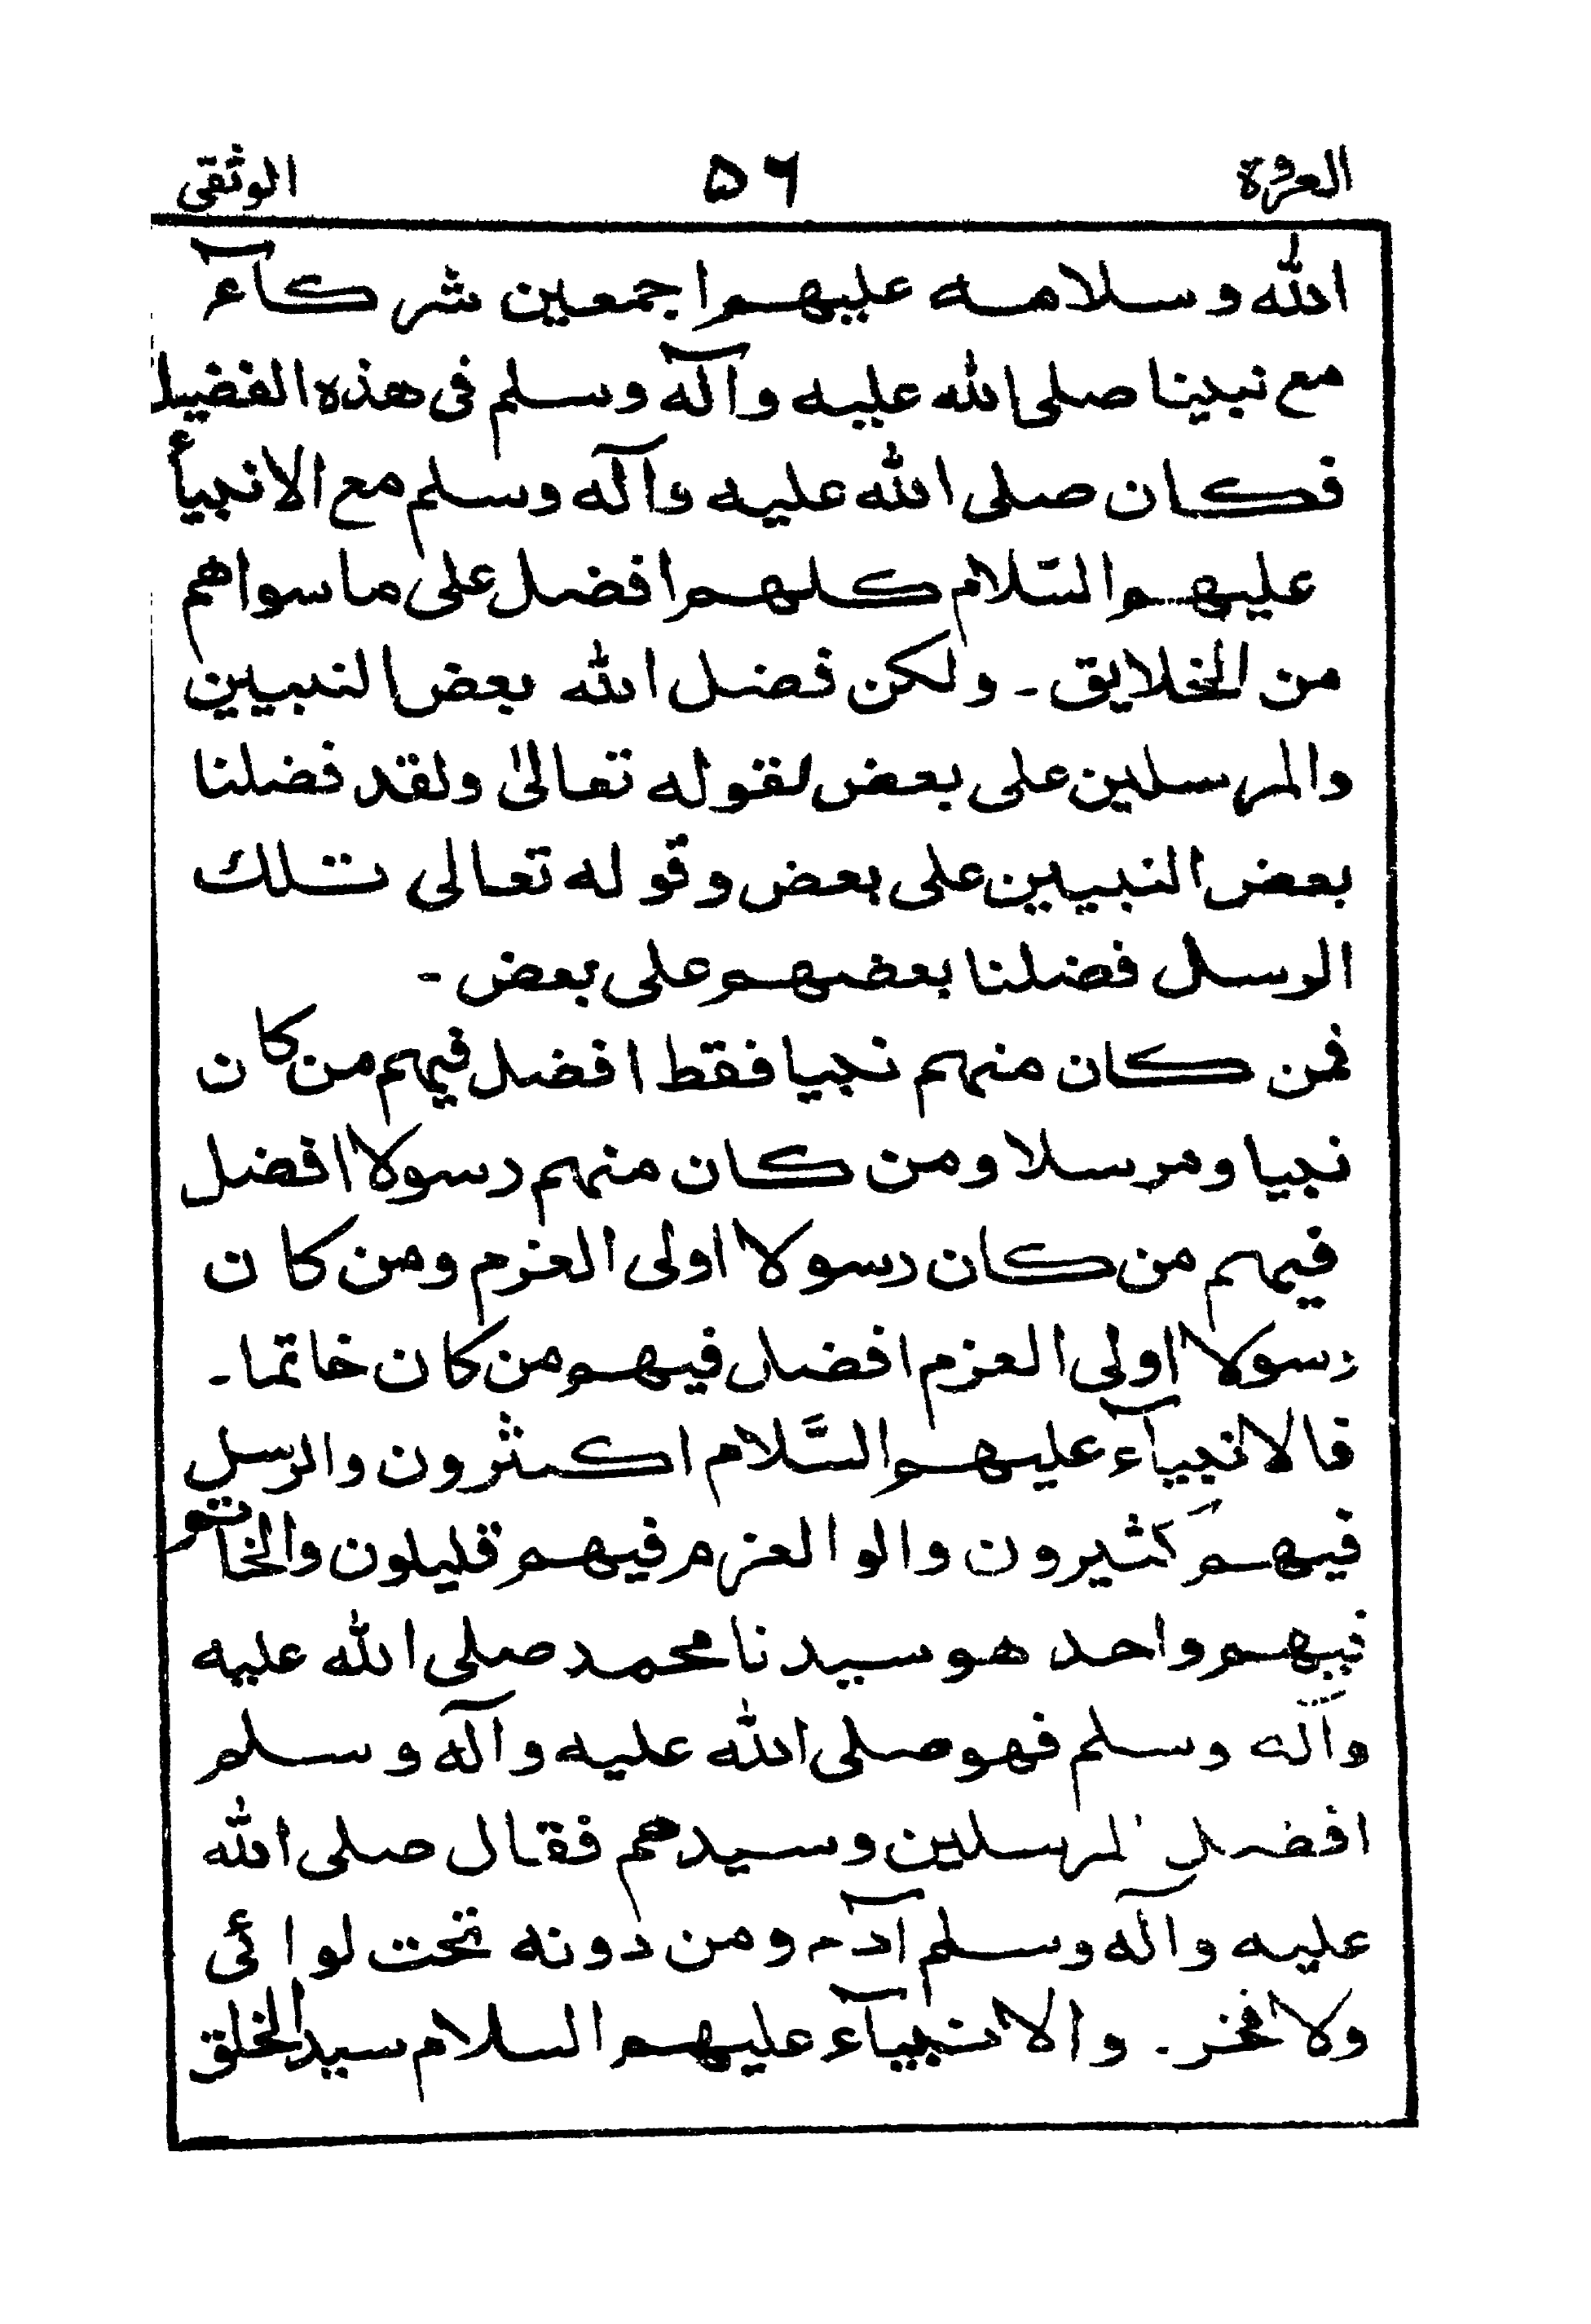 العروة ۵۶ الوثقى
الله وسلامه عليهم اجمعين شركآء
مع نبينا صلى الله عليه وآله وسلم فى هذه الفضيل
فكان صلى الله عليه وآله وسلم مع الانبيأ
عليهم السّلام كلهم افضل على ما سواهم
من الخلايق ـ ولكن فضل الله بعض النبيين
والمرسلين على بعض لقوله تعالىٰ ولقد فضلنا
بعض النبيين على بعض وقوله تعالى تلك
الرسل فضلنا بعضهم على بعض ـ
فمن كان منهم نبيا فقط افضل فيهم من كان
نبيا ومرسلا ومن كان منهم رسولا افضل
فيهم من كان رسولا اولى العزم ومن كان
رسولا اولى العزم افضل فيهم من كان خاتما ـ
فالانبيآء عليهم السَّلام اكثرون والرسل
فيهم كثيرون والوا العزم فيهم قليلون والخاتم
فيهم واحد هو سيدنا محمد صلى الله عليه
وآله وسلم فهو صلى الله عليه وآله وسلم
افضل المرسلين وسيدهم فقال صلى الله
عليه وآله وسلم آدم ومن دونه تحت لوائى
ولا فخر ـ والانبيآء عليهم السلام سيد الخلق